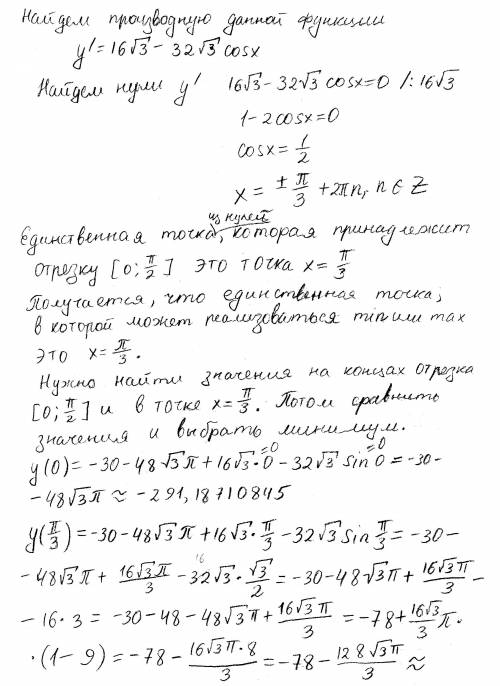 Найдем производную данной функции
y' = 16√3 − 32√3 cosx
Найдем нули y'   16√3 − 32√3 cosx=0 /:16√3
1−2cosx=0
cosx = 1/2
x = ± π/3 + 2πn, n ∈ Z
из нулей
Единственная точка, которая принадлежит
отрезку [0; π/2] это точка x = π/3
Получается, что единственная точка,
в которой может реализоваться min или max
это x = π/3.
Нужно найти значения на концах отрезка
[0; π/2] и в точке x = π/3. Потом сравнить
значения и выбрать минимум.
=0 =0
y(0) = −30 − 48√3π + 16√3·0 − 32√3 sin0 = −30−
−48√3π ≈ −291,18710845
y(π/3) = −30−48√3π + 16√3·π/3 − 32√3 sin π/3 = −30−
16
−48√3π + 16√3π/3 − 32√3·√3/2 = −30−48√3π + 16√3π/3 −
−16·3 = −30−48−48√3π + 16√3π/3 = −78 + 16√3/3 π·
·(1−9) = −78 − 16√3π·8/3 = −78 − 128√3π/3 ≈